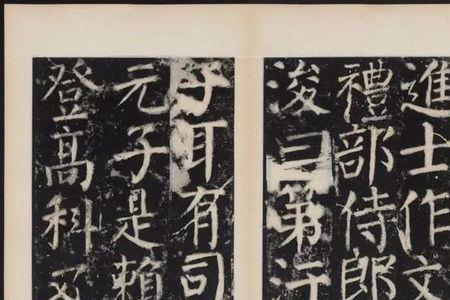 進士作文
禮部侍郎
浚曰第汙
子耳有司
元子是賴
登高科